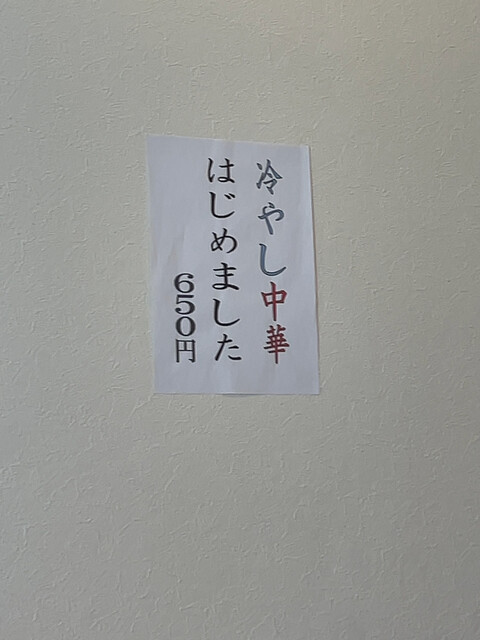 冷やし中華
はじめました
650円